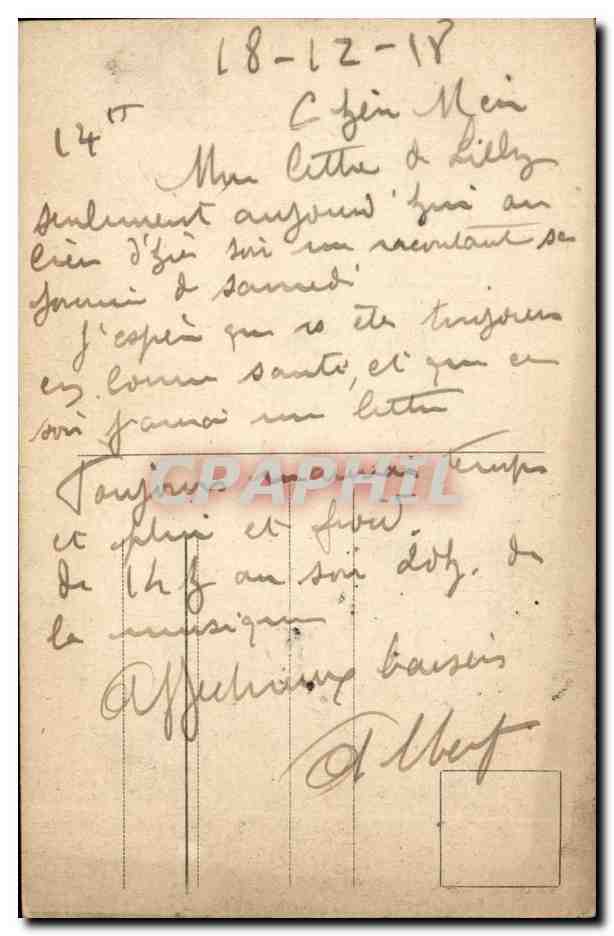 18-12-18
14H
Chère
lettre de Lilly
seulement aujourd'hui au
lieu d'hier soir me racontant sa
journée de samedi
J'espère que vs êtes toujours
en bonne santé, et que ce
soir j'aurai une lettre
Toujours mauvais temps
et pluie et froid.
de 14 h au soir 20h. de
la musique
Affectueux baisers
Albert
CPAPHIL